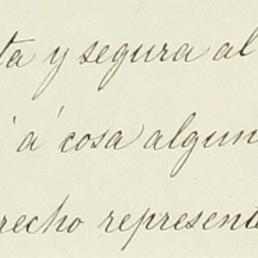 ta y segura al
á cosa algun
recho represent